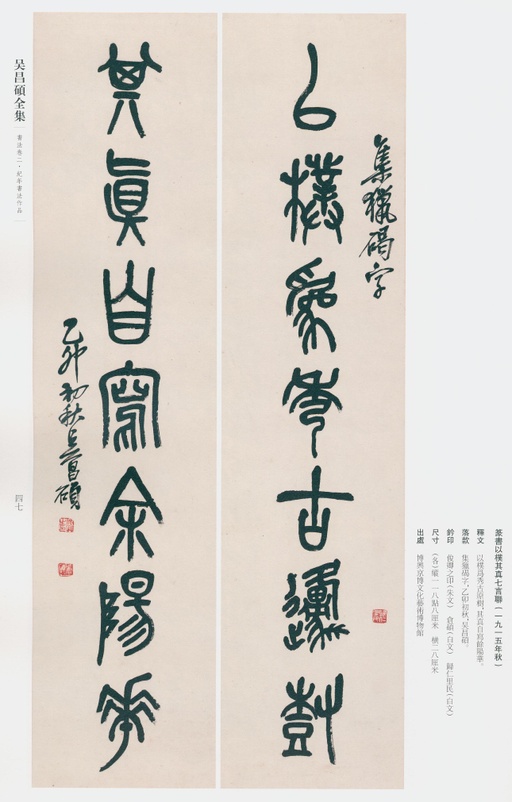 集獵碣字
以樸為秀古原樹
其真自寫余陽華
乙卯初秋吳昌碩
吴昌碩全集
書法卷二·紀年書法作品
四七
篆書以樸其真七言聯（一九一五年秋）
釋文　以樸爲秀古原樹，其真自寫餘陽華。
落款　集獵碣字，乙卯初秋，吴昌碩。
鈐印　俊卿之印（朱文）　倉碩（白文）　歸仁里民（白文）
尺寸　（各）縱一一八點八厘米　橫二八厘米
出處　博興京博文化藝術博物館